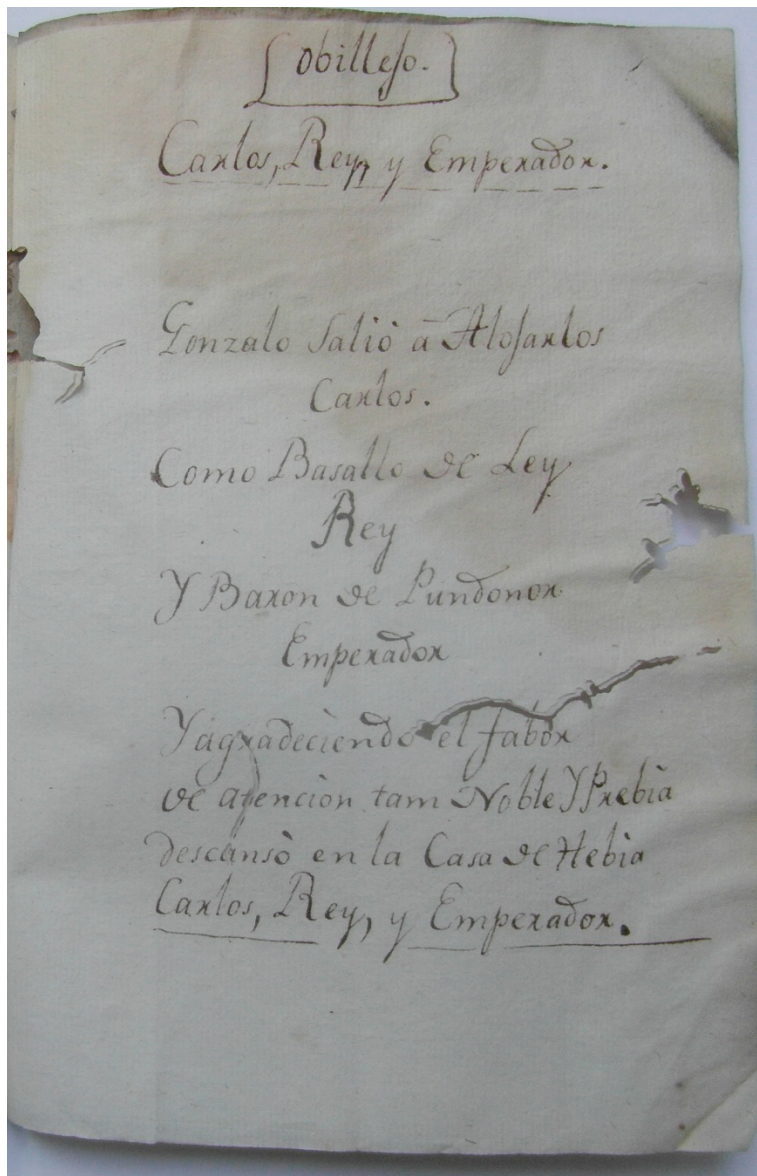 Obillejo.
Carlos, Rey, y Emperador.
Gonzalo Saliò à Alojarlos
Carlos.
Como Basallo de Ley
Rey
Y Baron de Pundonor
Emperador
Y agradeciendo el fabor
de atencion tam Noble Y Prebia
descansò en la Casa de Hebia
Carlos, Rey, y Emperador.